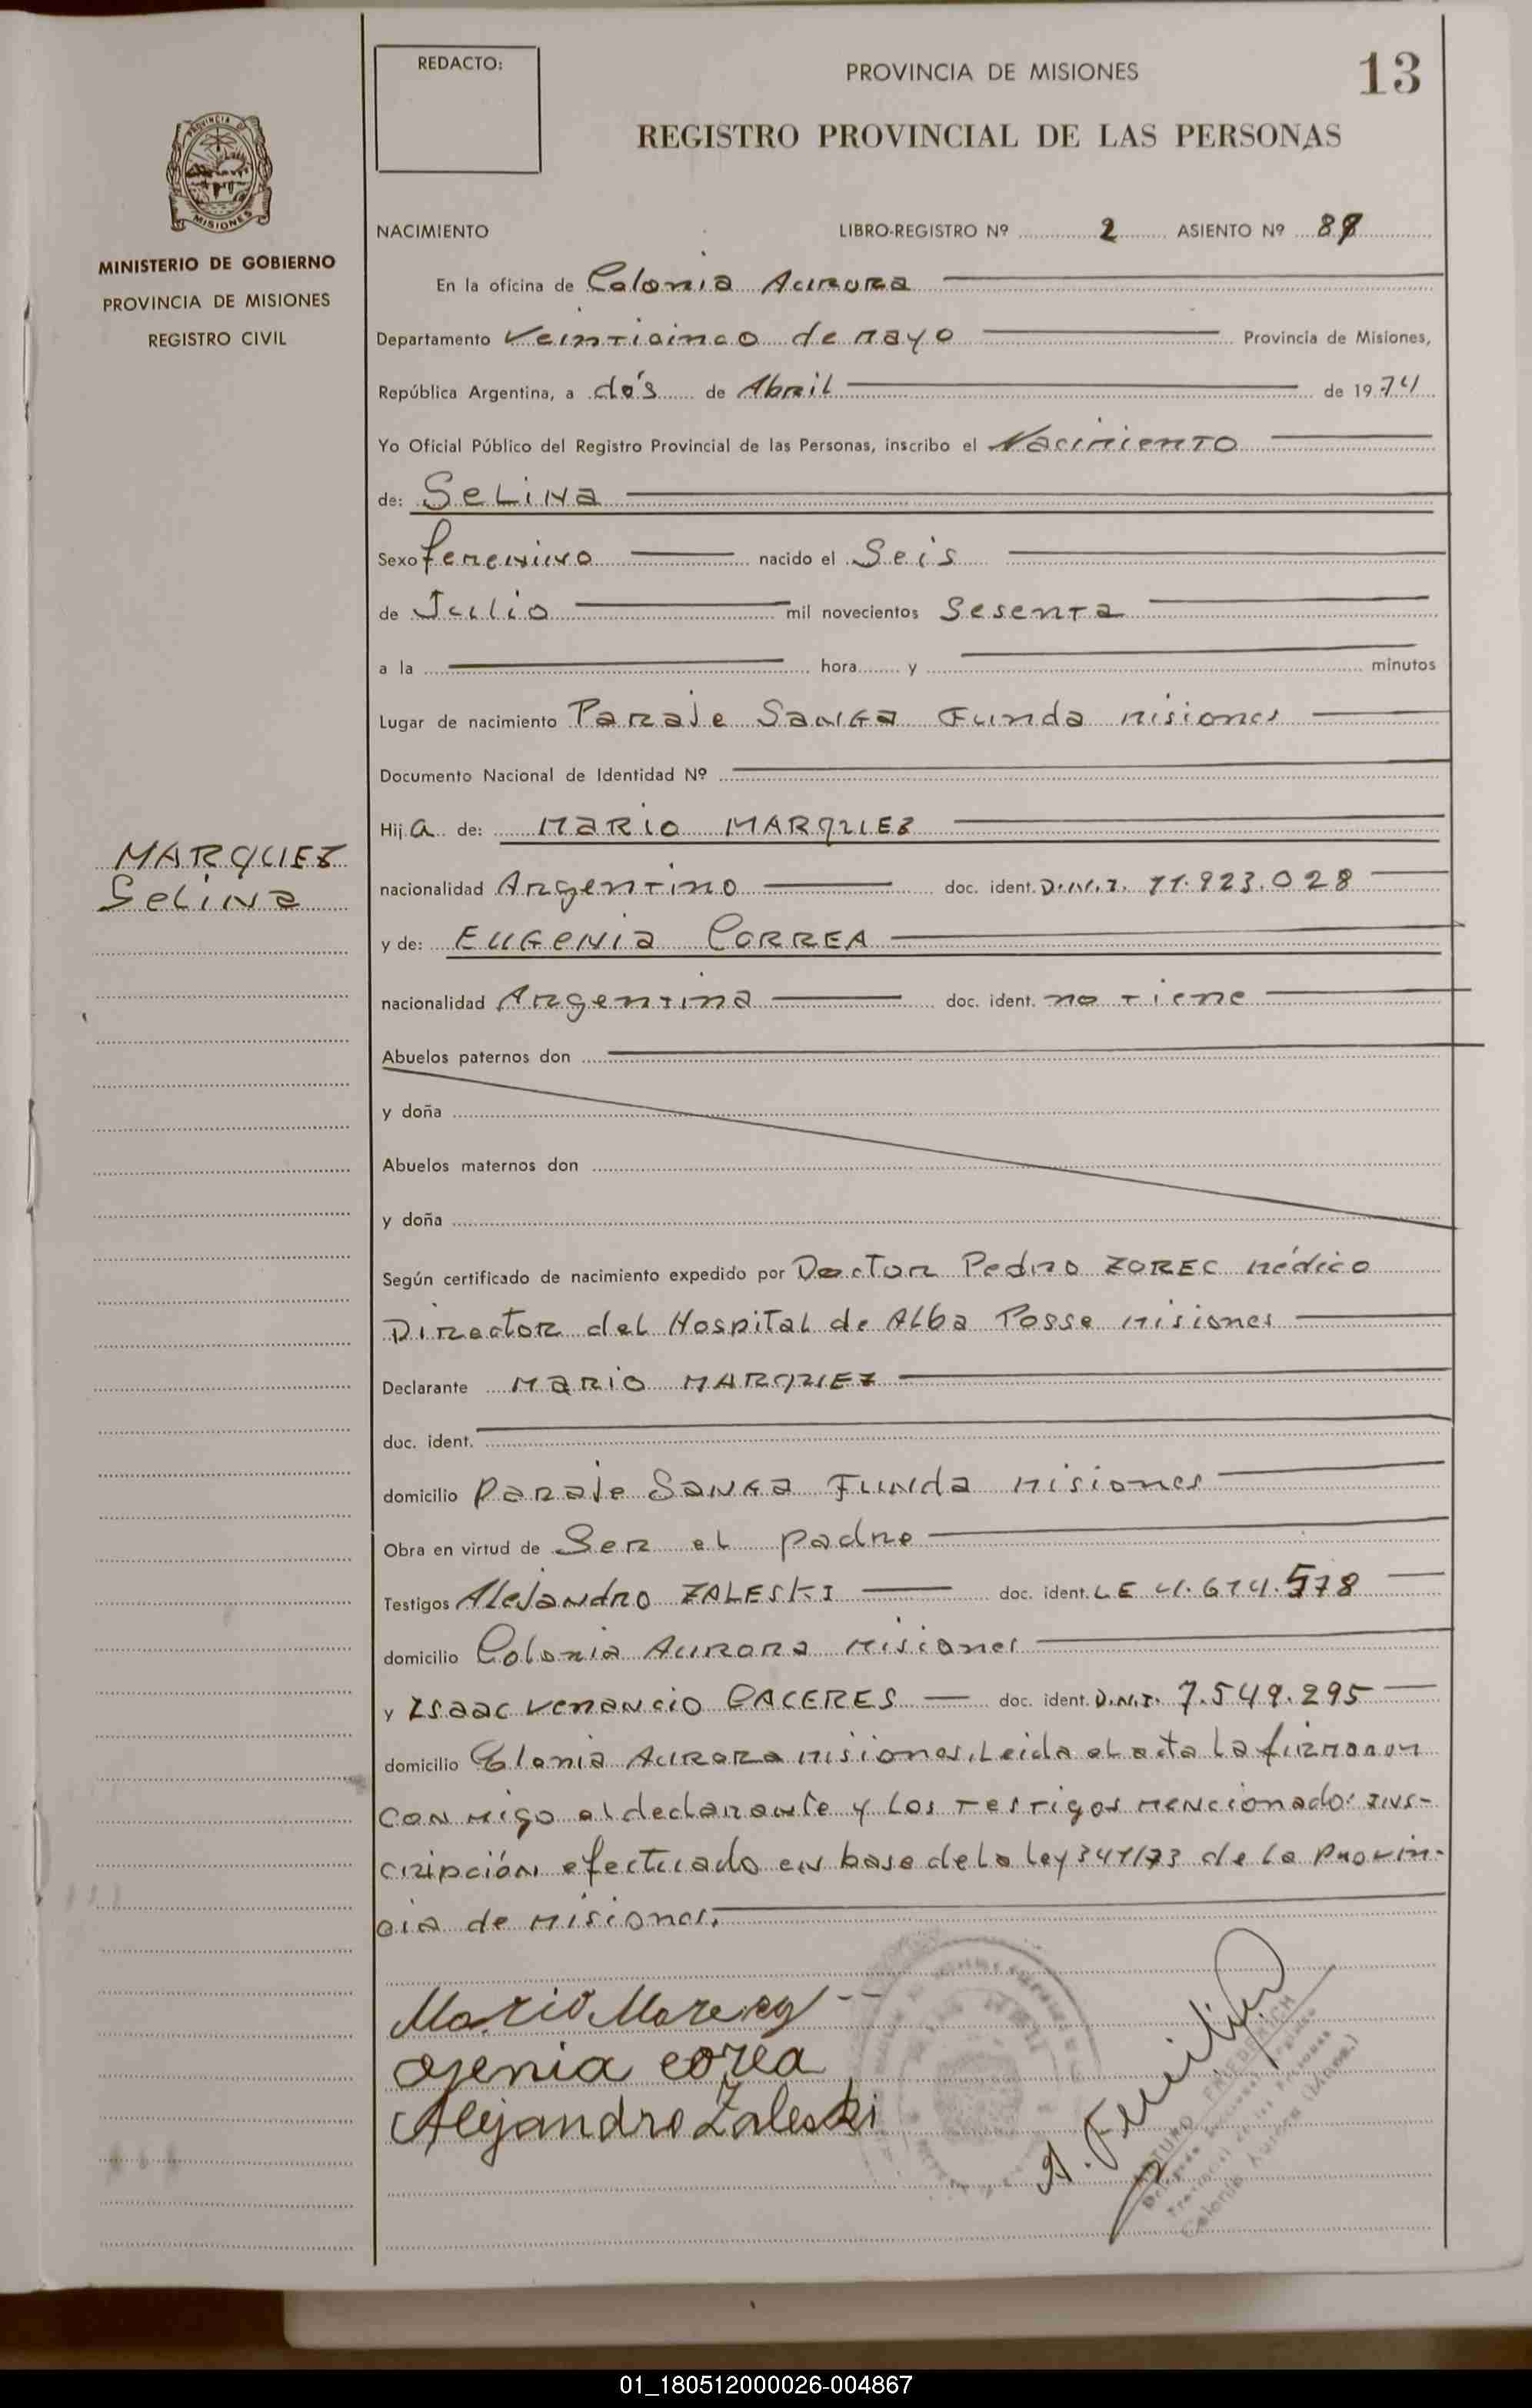 REDACTO:
PROVINCIA DE MISIONES
13
REGISTRO PROVINCIAL DE LAS PERSONAS
PROVINCIA DE
MISIONES
MINISTERIO DE GOBIERNO
PROVINCIA DE MISIONES
REGISTRO CIVIL
NACIMIENTO LIBRO-REGISTRO Nº 2 ASIENTO Nº 89
En la oficina de Colonia Aurora
Departamento Veinticinco de mayo Provincia de Misiones,
República Argentina, a dós de Abril de 1974
Yo Oficial Público del Registro Provincial de las Personas, inscribo el Nacimiento
de: SeLiNa
Sexo femenino nacido el Seis
de Julio mil novecientos Sesenta
a la hora y minutos
Lugar de nacimiento Paraje Sanga Funda misiones
Documento Nacional de Identidad Nº
Hija de: MaRio MARQUEZ
MARQUEZ
Selina
nacionalidad Argentino doc. ident. D.N.I. 11.923.028
y de: EUGeNia CORREA
nacionalidad Argentina doc. ident. no tiene
Abuelos paternos don
y doña
Abuelos maternos don
y doña
Según certificado de nacimiento expedido por Doctor Pedro ZOREC médico
Director del Hospital de Alba Posse misiones
Declarante MaRiO MARQUEZ
doc. ident.
domicilio Paraje Sanga Funda misiones
Obra en virtud de Ser el padre
Testigos Alejandro ZALESKI doc. ident. LE 4.614.578
domicilio Colonia Aurora misiones
y Isaac Venancio CACERES doc. ident. D.N.I. 7.549.295
domicilio Colonia Aurora misiones. Leida el acta la firmaron
conmigo el declarante y los testigos mencionado: ins-
cripción efectuado en base de la Ley 341/73 de la Provin-
cia de misiones.
Mario
ogenia corea
Alejandro Zaleski
ARTURO FRIEDERICH
Colonia Aurora (Mnes.)
01_180512000026-004867